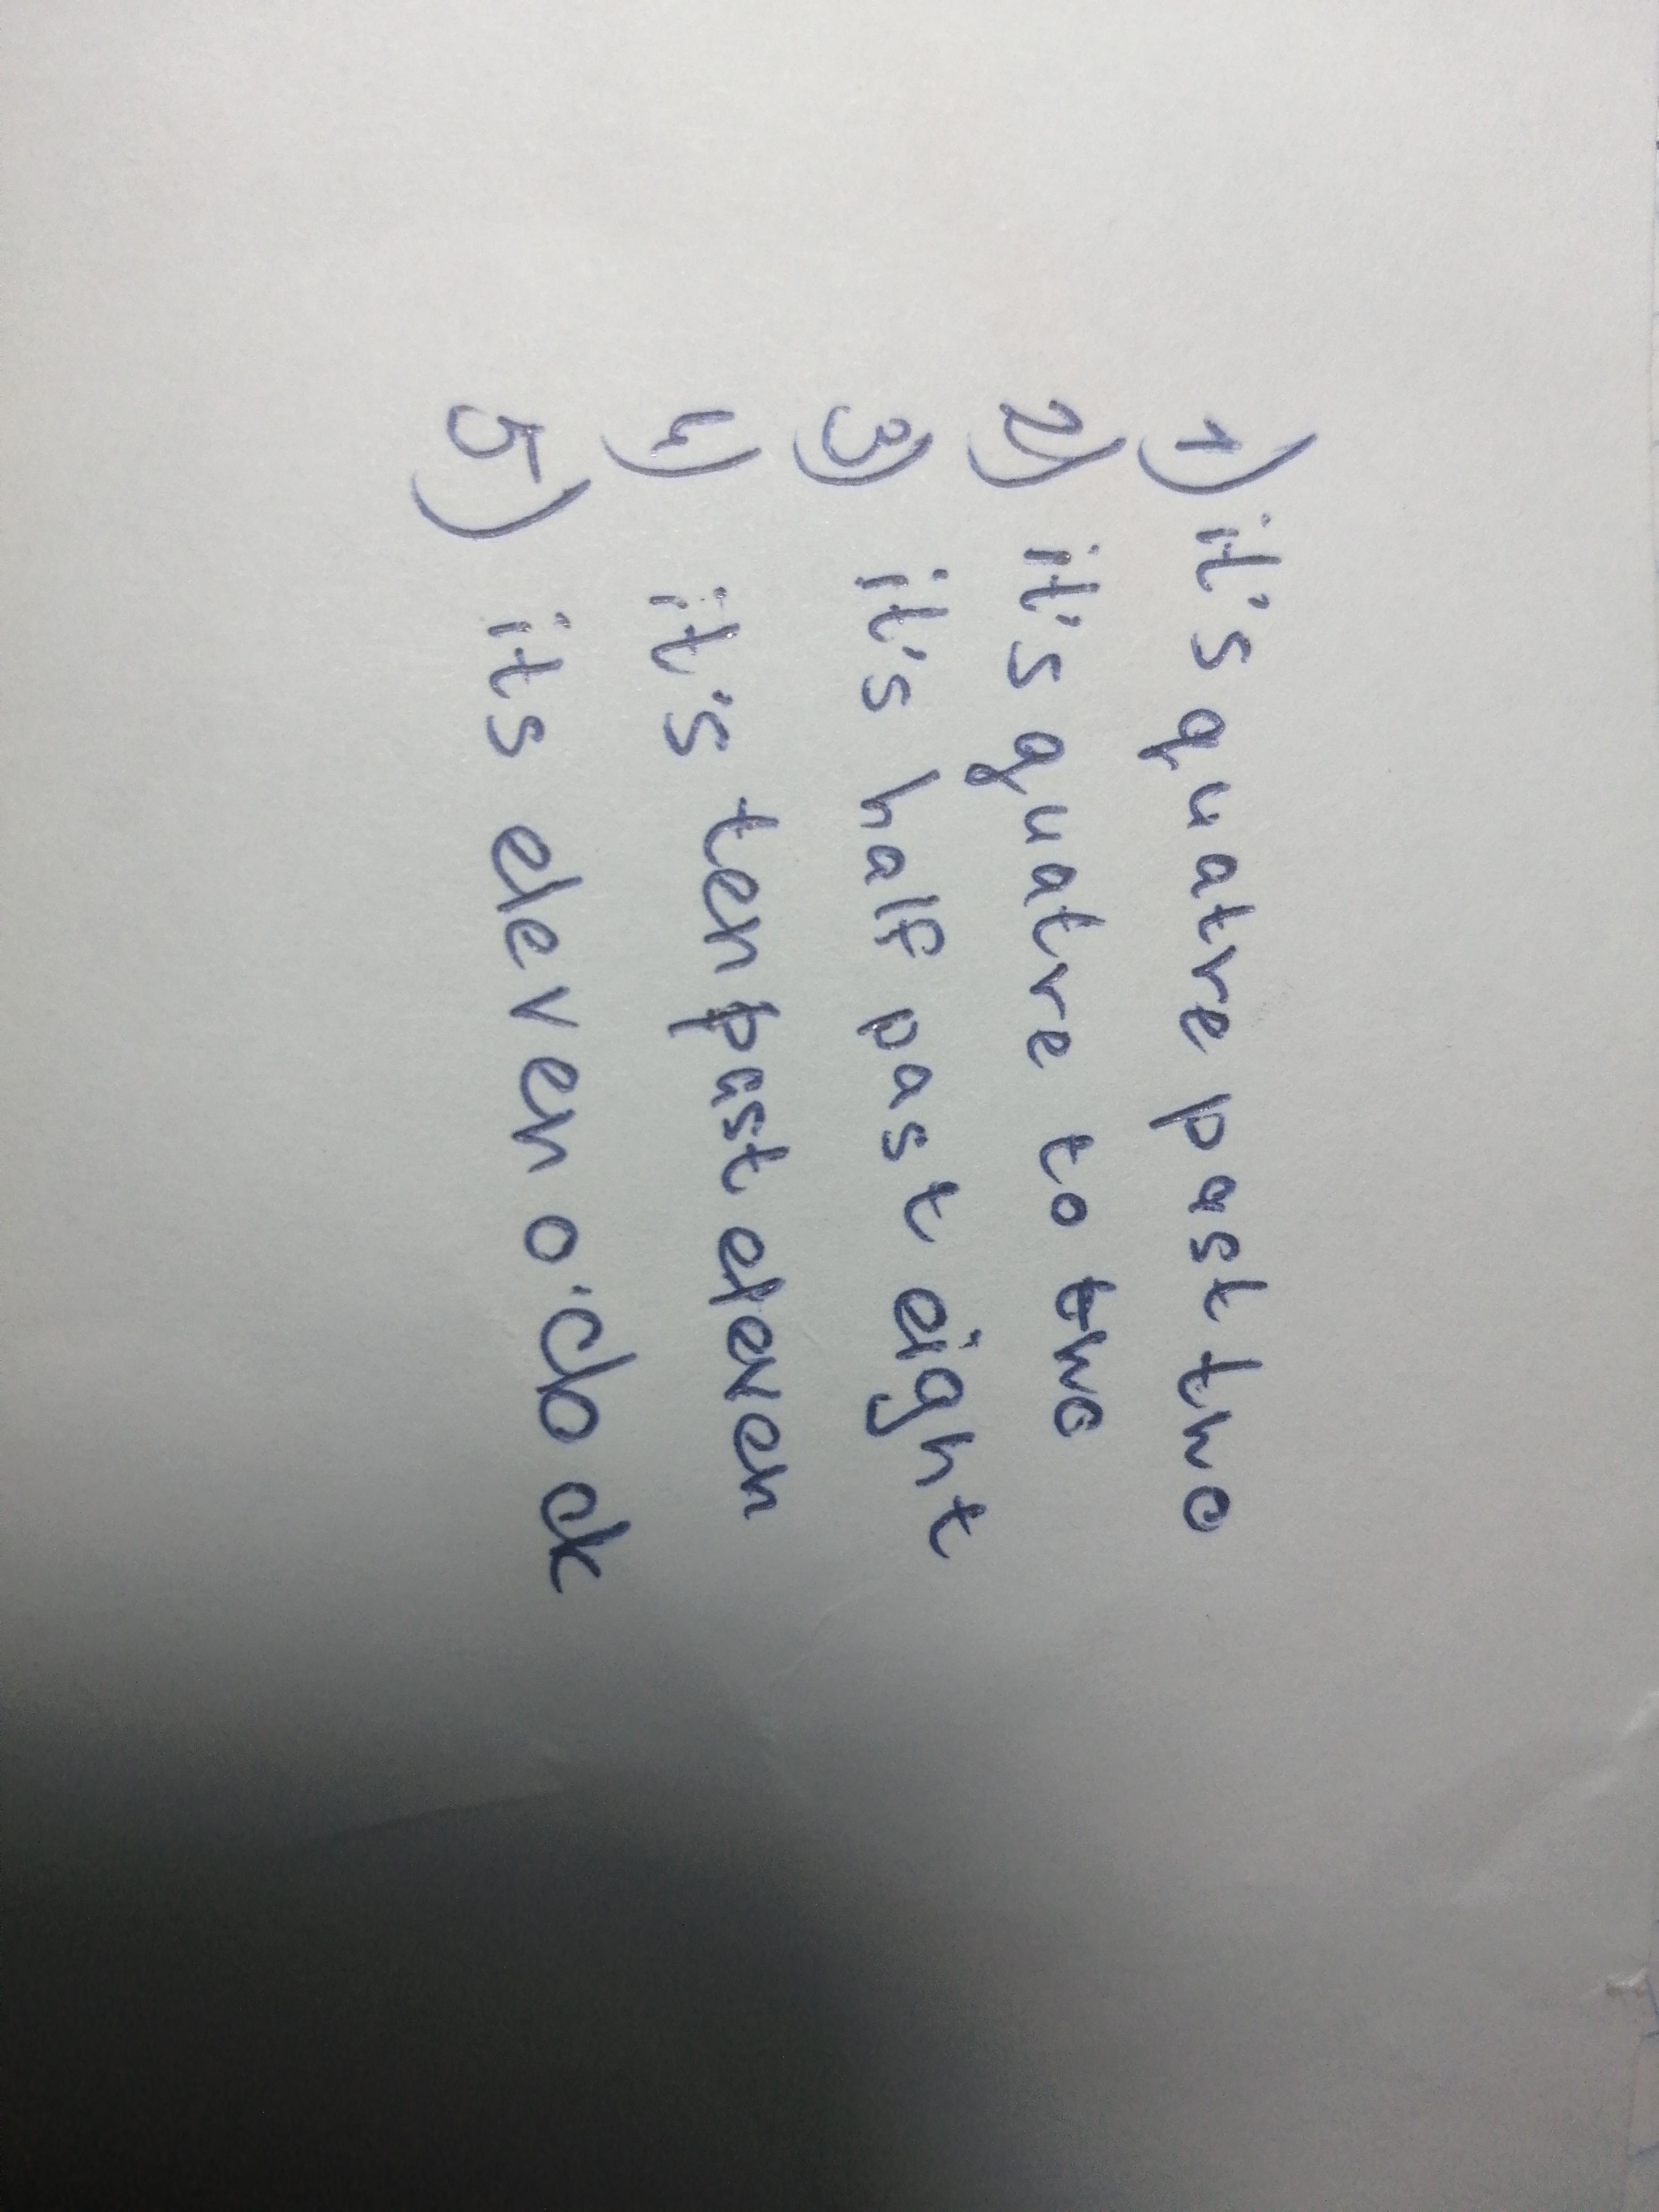 1) it's quatre past two
2) it's quatre to two
3) it's half past eight
4) it's ten past eleven
5) its eleven o'clock